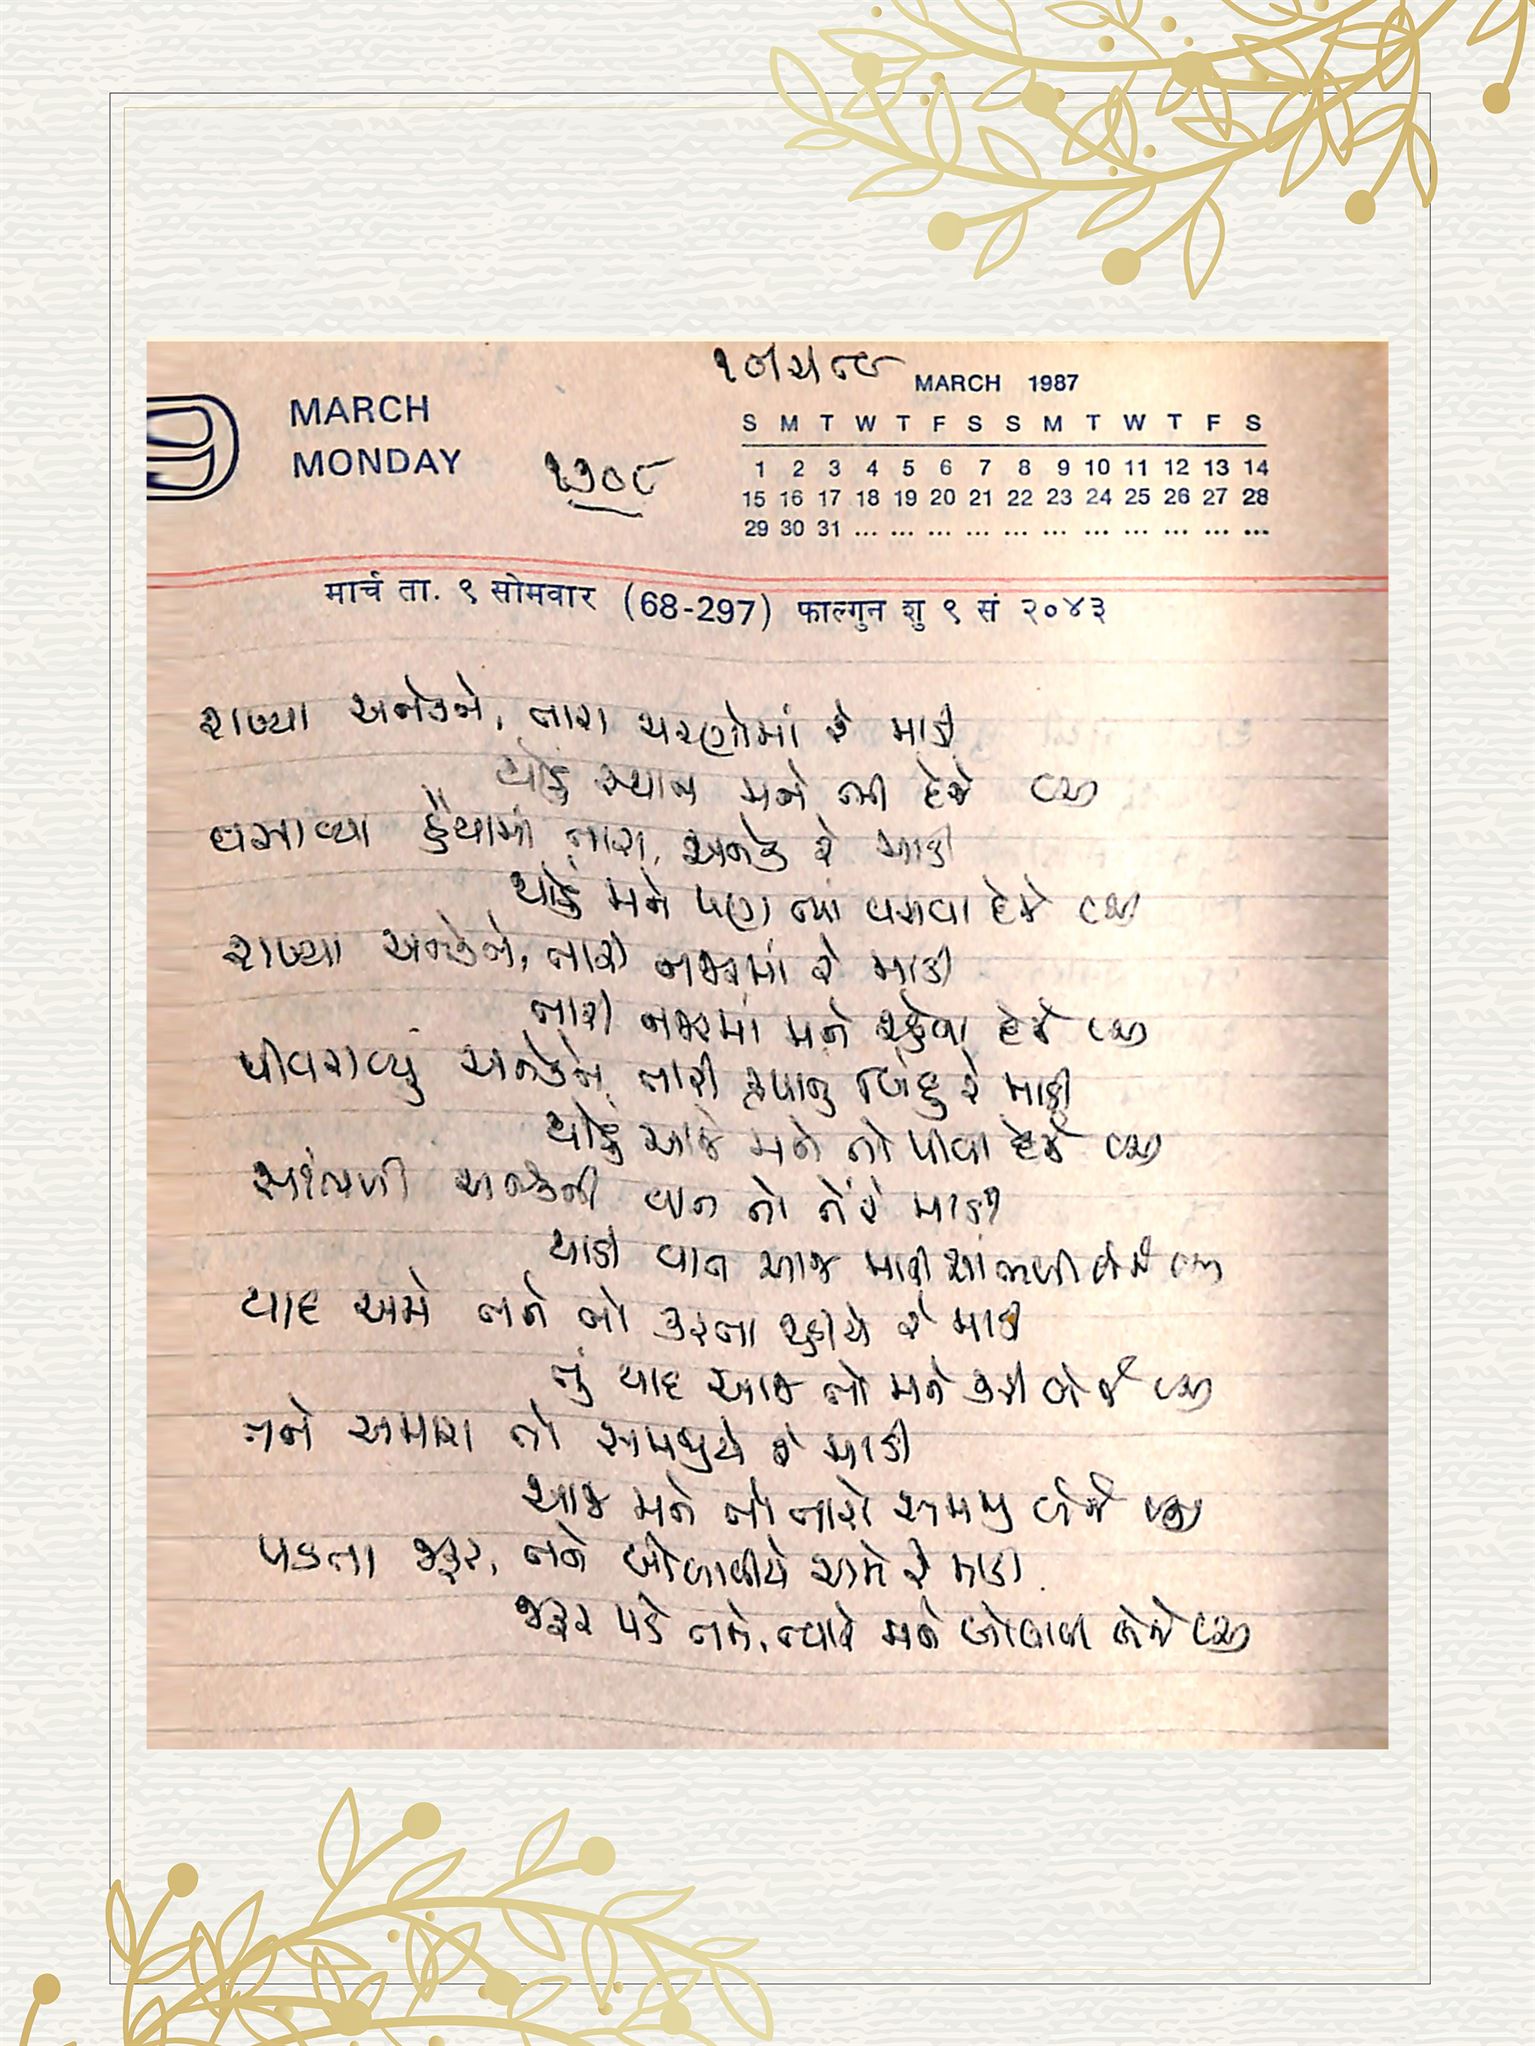 MARCH
MONDAY
૧૩૦૮
MARCH 1987
S M T W T F S S M T W T F S
1 2 3 4 5 6 7 8 9 10 11 12 13 14
15 16 17 18 19 20 21 22 23 24 25 26 27 28
29 30 31 ... ... ... ... ... ... ... ... ... ... ...
मार्च ता. ९ सोमवार (68-297) फाल्गुन शु ९ सं २०४३
રાખ્યા અનેકને, તારા ચરણોમાં રે માડી
થોડું સ્થાન મને ભી દેજે
વસાવ્યા હૈયામાં તારા, અનેક રે માડી
થોડું મને પણ ત્યાં વસવા દેજે
રાખ્યા અનેકને, તારી નજરમાં રે માડી
તારી નજરમાં મને રહેવા દેજે
પીવરાવ્યું અનેકને તારી કૃપાનુ બિંદુ રે માડી
થોડું આજે મને તો પીવા દેજે
સાંભળી અનેકની વાત તો તેં રે માડી
થોડી વાત આજ મારી સાંભળી લેજે
યાદ અમે તને તો કરતા રહીયે રે માડી
તું યાદ આજ તો મને કરી લેજે
તને અમારા તો સમજીયે રે માડી
આજ મને તો તારો સમજી લેજે
પડતા જરૂર, તને બોલાવીયે અમે રે માડી.
જરૂર પડે તને, ત્યારે મને બોલાવી લેજે